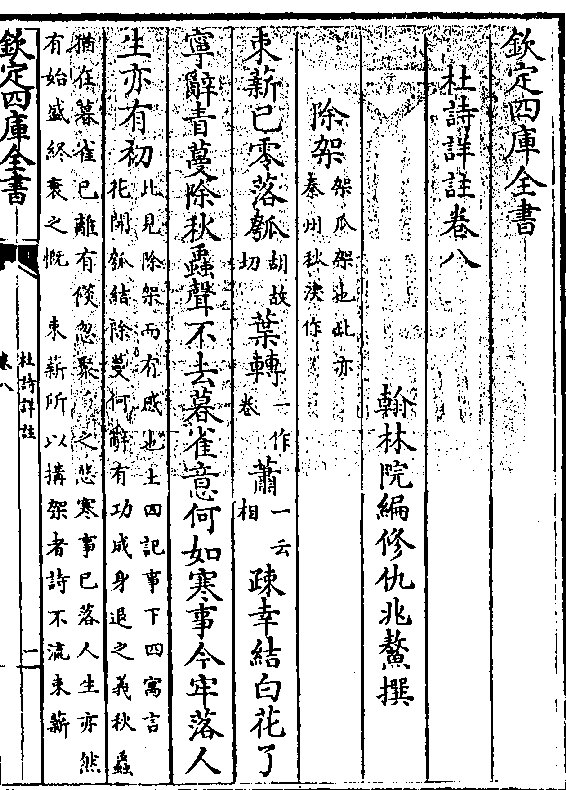 欽定四庫全書
杜詩詳註卷八
翰林院編修仇兆鰲撰
除架架瓜架也此亦
秦州秋後作
束薪已零落瓠胡故
切葉轉一作
卷蕭一云
相疎幸結白花了
寧辭青蔓除秋蟲聲不去暮雀意何如寒事今牢落人
生亦有初此見除架而有感也上四記事下四寓言
花開瓠結除蔓何辭有功成身退之義秋蟲
猶在暮雀已離有倐忽聚之悲寒事已落人生亦然
有始盛終衰之慨 束薪所以搆架者詩不流束薪
欽定四庫全書
杜詩詳註
卷八
一